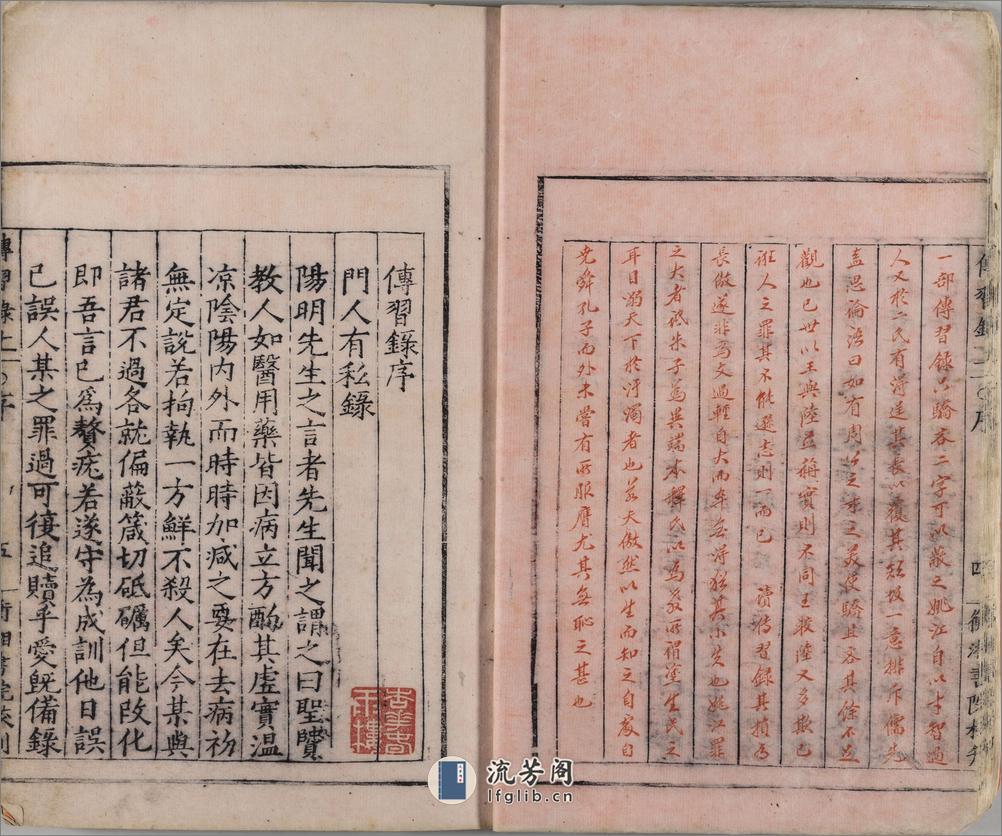 一部傳習錄只驕吝二字可以蔽之姚江自以才智過
人又於二氏有得逞其長以覆其短故一意排斥儒先
蓋思論語曰如有周公之才之美使驕且吝其餘不足
觀也已世以王與陸並稱實則不同王較陸又多欺己
誑人之罪其不能遜志則一而已 讀傳習錄其損為
長傲遂非為文過輕自大而卒無得猶其小失也姚江罪
之大者詆朱子為異端本釋氏以為教所謂塗生民之
耳目溺天下於汙濁者也若夫傲然以生而知之自處自
堯舜孔子而外未嘗有所服膺尤其無恥之甚也
傳習錄序
門人有私錄
陽明先生之言者先生聞之謂之曰聖賢
教人如醫用藥皆因病立方酌其虛實溫
凉陰陽內外而時時加減之要在去病初
無定說若拘執一方鮮不殺人矣今某與
諸君不過各就偏蔽箴切砥礪但能改化
即吾言已為贅疣若遂守為成訓他日誤
己誤人某之罪過可復追贖乎愛既備錄
傳習錄上
序
五
流芳阁
lfglib.cn